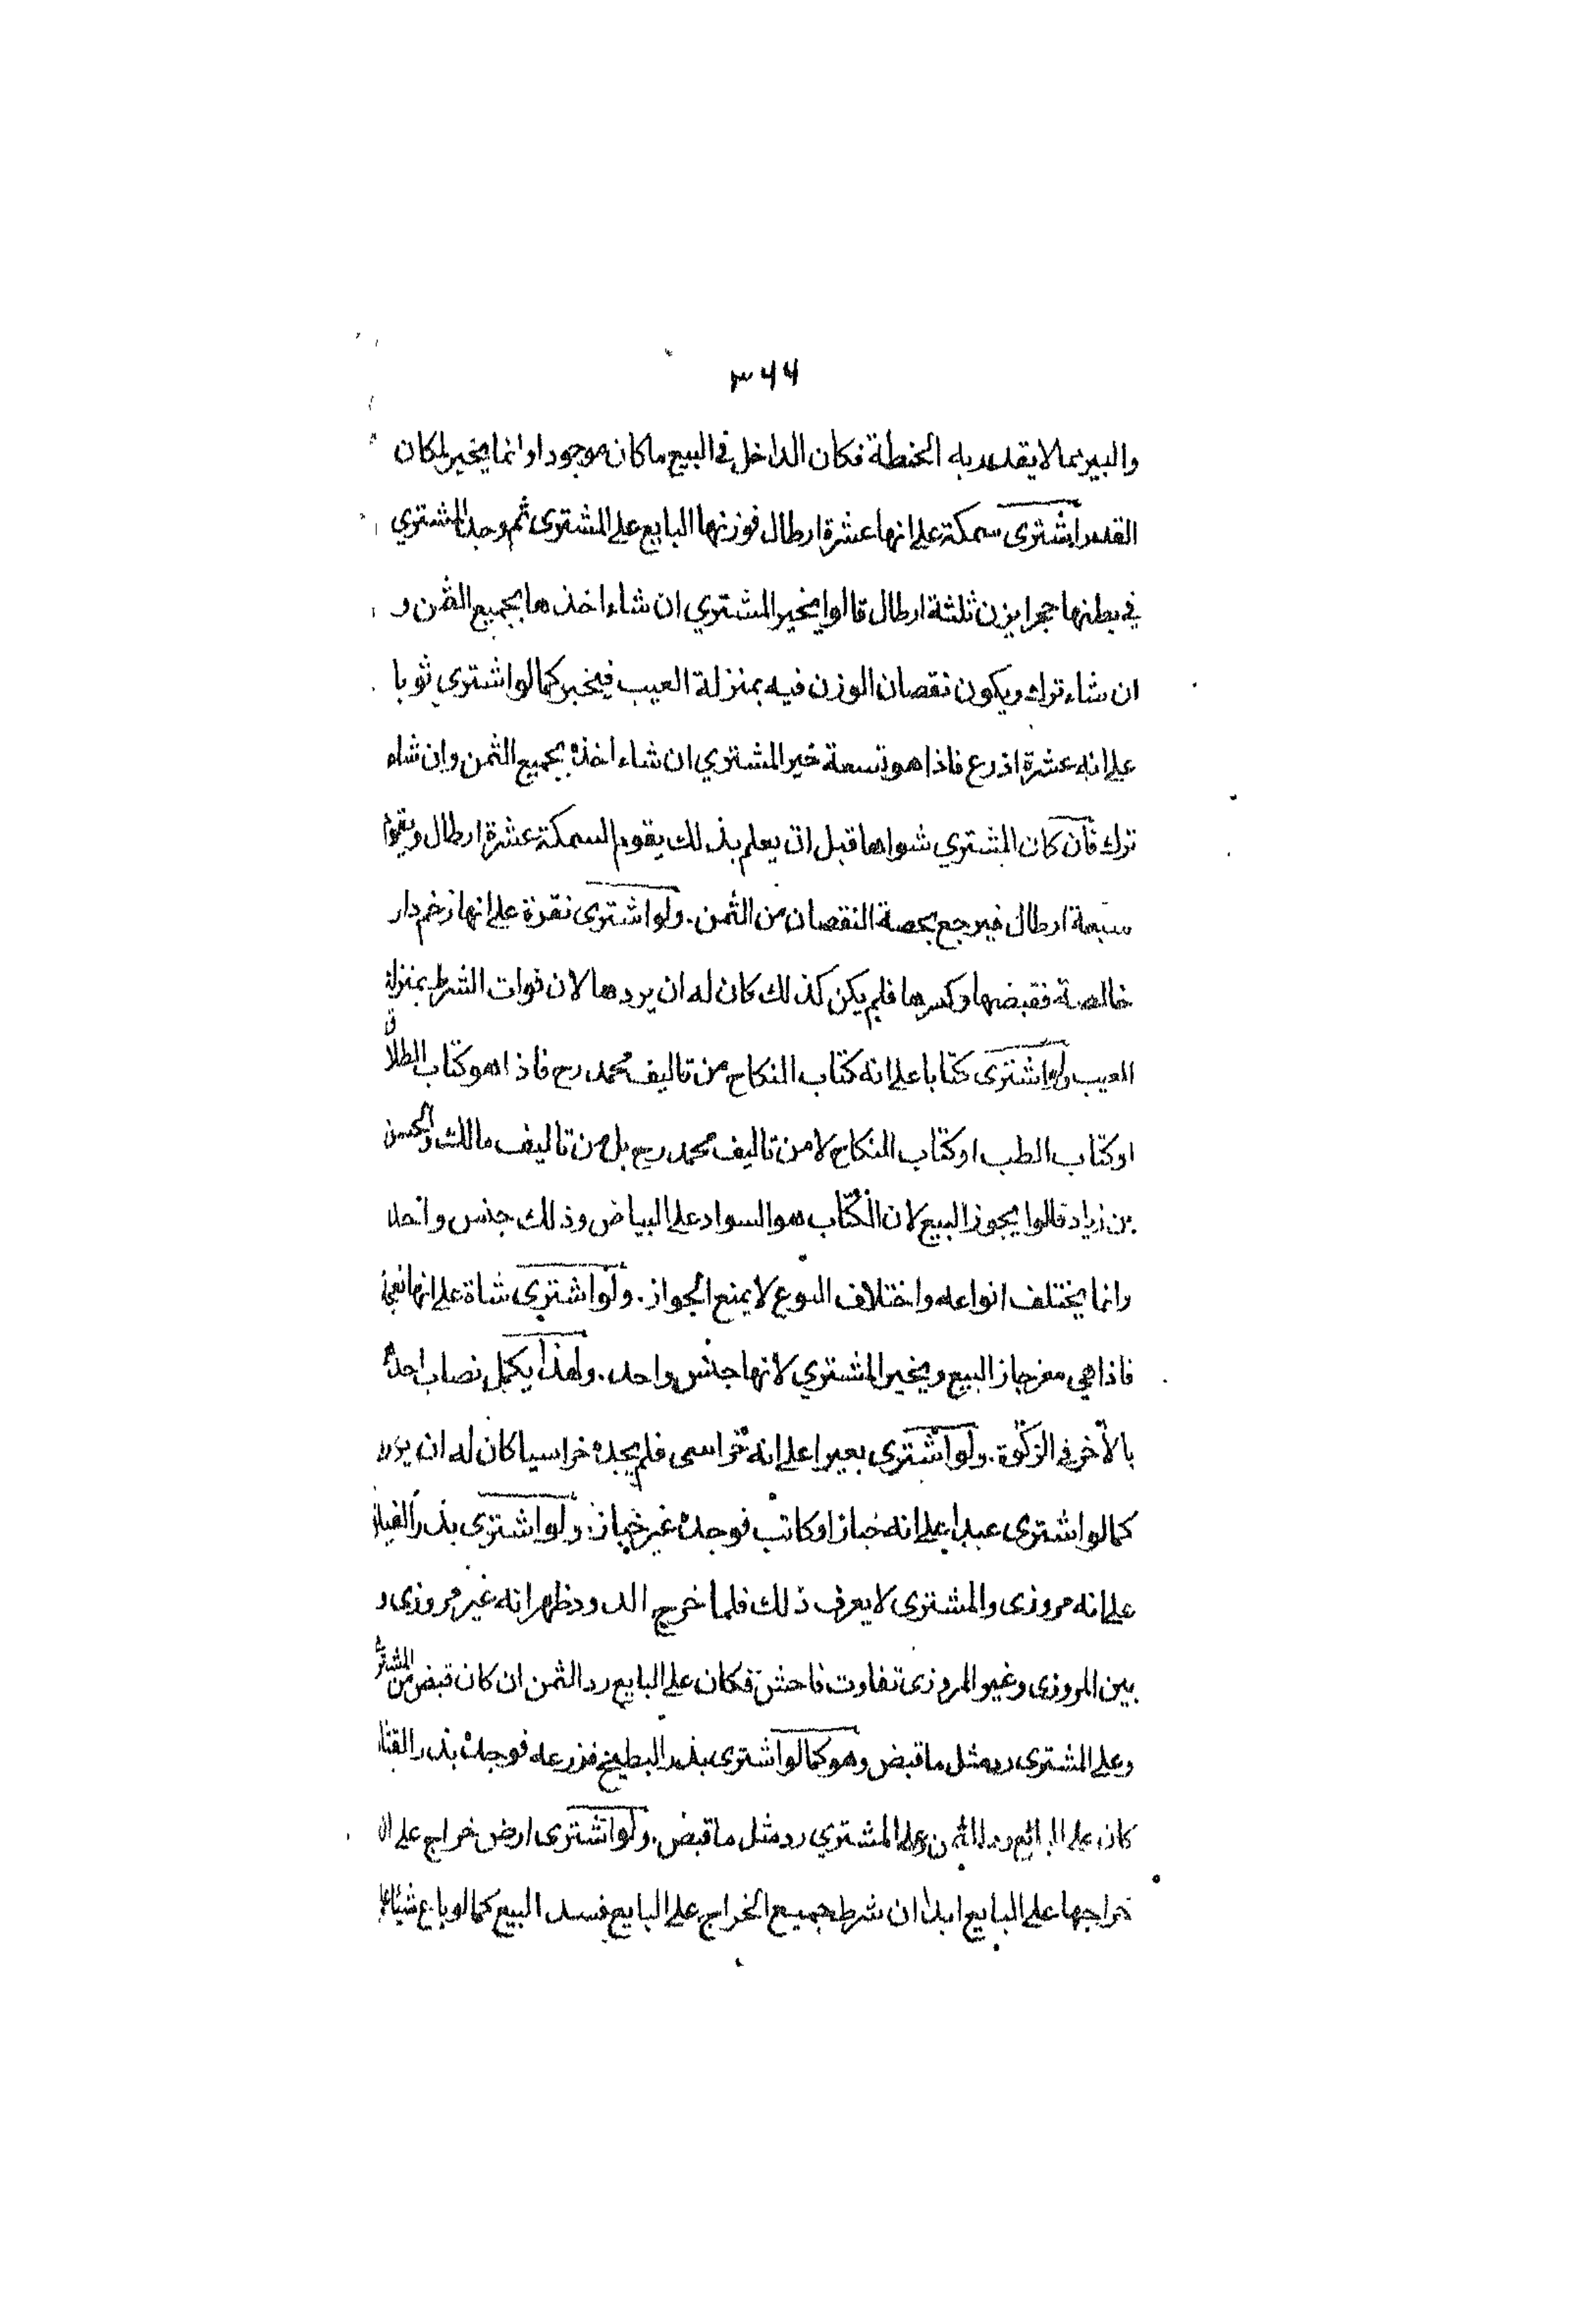 ٣٦٦
والبير مما لا يقدر به الحنطة فكان الداخل في البيع ما كان موجودا وانما يخير لمكان
القدر اشترى سمكة على انها عشرة ارطال فوزنها البايع على المشترى ثم وجد المشتري
في بطنها حجرا يزن ثلثة ارطال قالوا يخير المشتري ان شاء اخذها بجميع الثمن و
ان شاء ترك ويكون نقصان الوزن فيه بمنزلة العيب فيخير كما لو اشتري ثوبا
على انه عشرة اذرع فاذا هو تسعة خير المشتري ان شاء اخذه بجميع الثمن وان شاء
ترك فان كان المشتري شواها قبل ان يعلم بذلك يقوم السمكة عشرة ارطال ويقوم
سبعة ارطال فيرجع بحصة النقصان من الثمن . ولو اشترى نقرة على انها زخم دار
خالصة فقبضها وكسرها فلم يكن كذلك كان له ان يردها لان فوات الشرط بمنزلة
العيب ولو اشترى كتابا على انه كتاب النكاح من تاليف محمد رح فاذا هو كتاب الطلاق
او كتاب الطب او كتاب النكاح لا من تاليف محمد رح بل من تاليف مالك والحسن
بن زياد قالوا يجوز البيع لان الكتاب هو السواد على البياض وذلك جنس واحد
وانما يختلف انواعه واختلاف النوع لا يمنع الجواز . ولو اشترى شاة على انها نعجة
فاذا هي معز جاز البيع ويخير المشتري لانها جنس واحد . ولهذا يكمل نصاب احده
بالآخر في الزكوة . ولو اشترى بعيرا على انه خراسى فلم يجده خراسيا كان له ان يرد
كما لو اشترى عبدا على انه خباز او كاتب فوجده غير خباز . ولو اشترى بذر الفيلق
على انه مروزى والمشترى لا يعرف ذلك فلما خرج الدود ظهر انه غير مروزى و
بين المروزى وغير المروزى تفاوت فاحش فكان على البايع رد الثمن ان كان قبض من المشتري
وعلى المشترى رد مثل ما قبض وهو كما لو اشترى بذر البطيخ فزرعه فوجده بذر القثاء
كان على البائع رد الثمن وعلى المشتري رد مثل ما قبض . ولو اشترى ارض خراج على ان
خراجها على البايع ابدا ان شرط جميع الخراج على البايع فسد البيع كما لو باع شيئا على